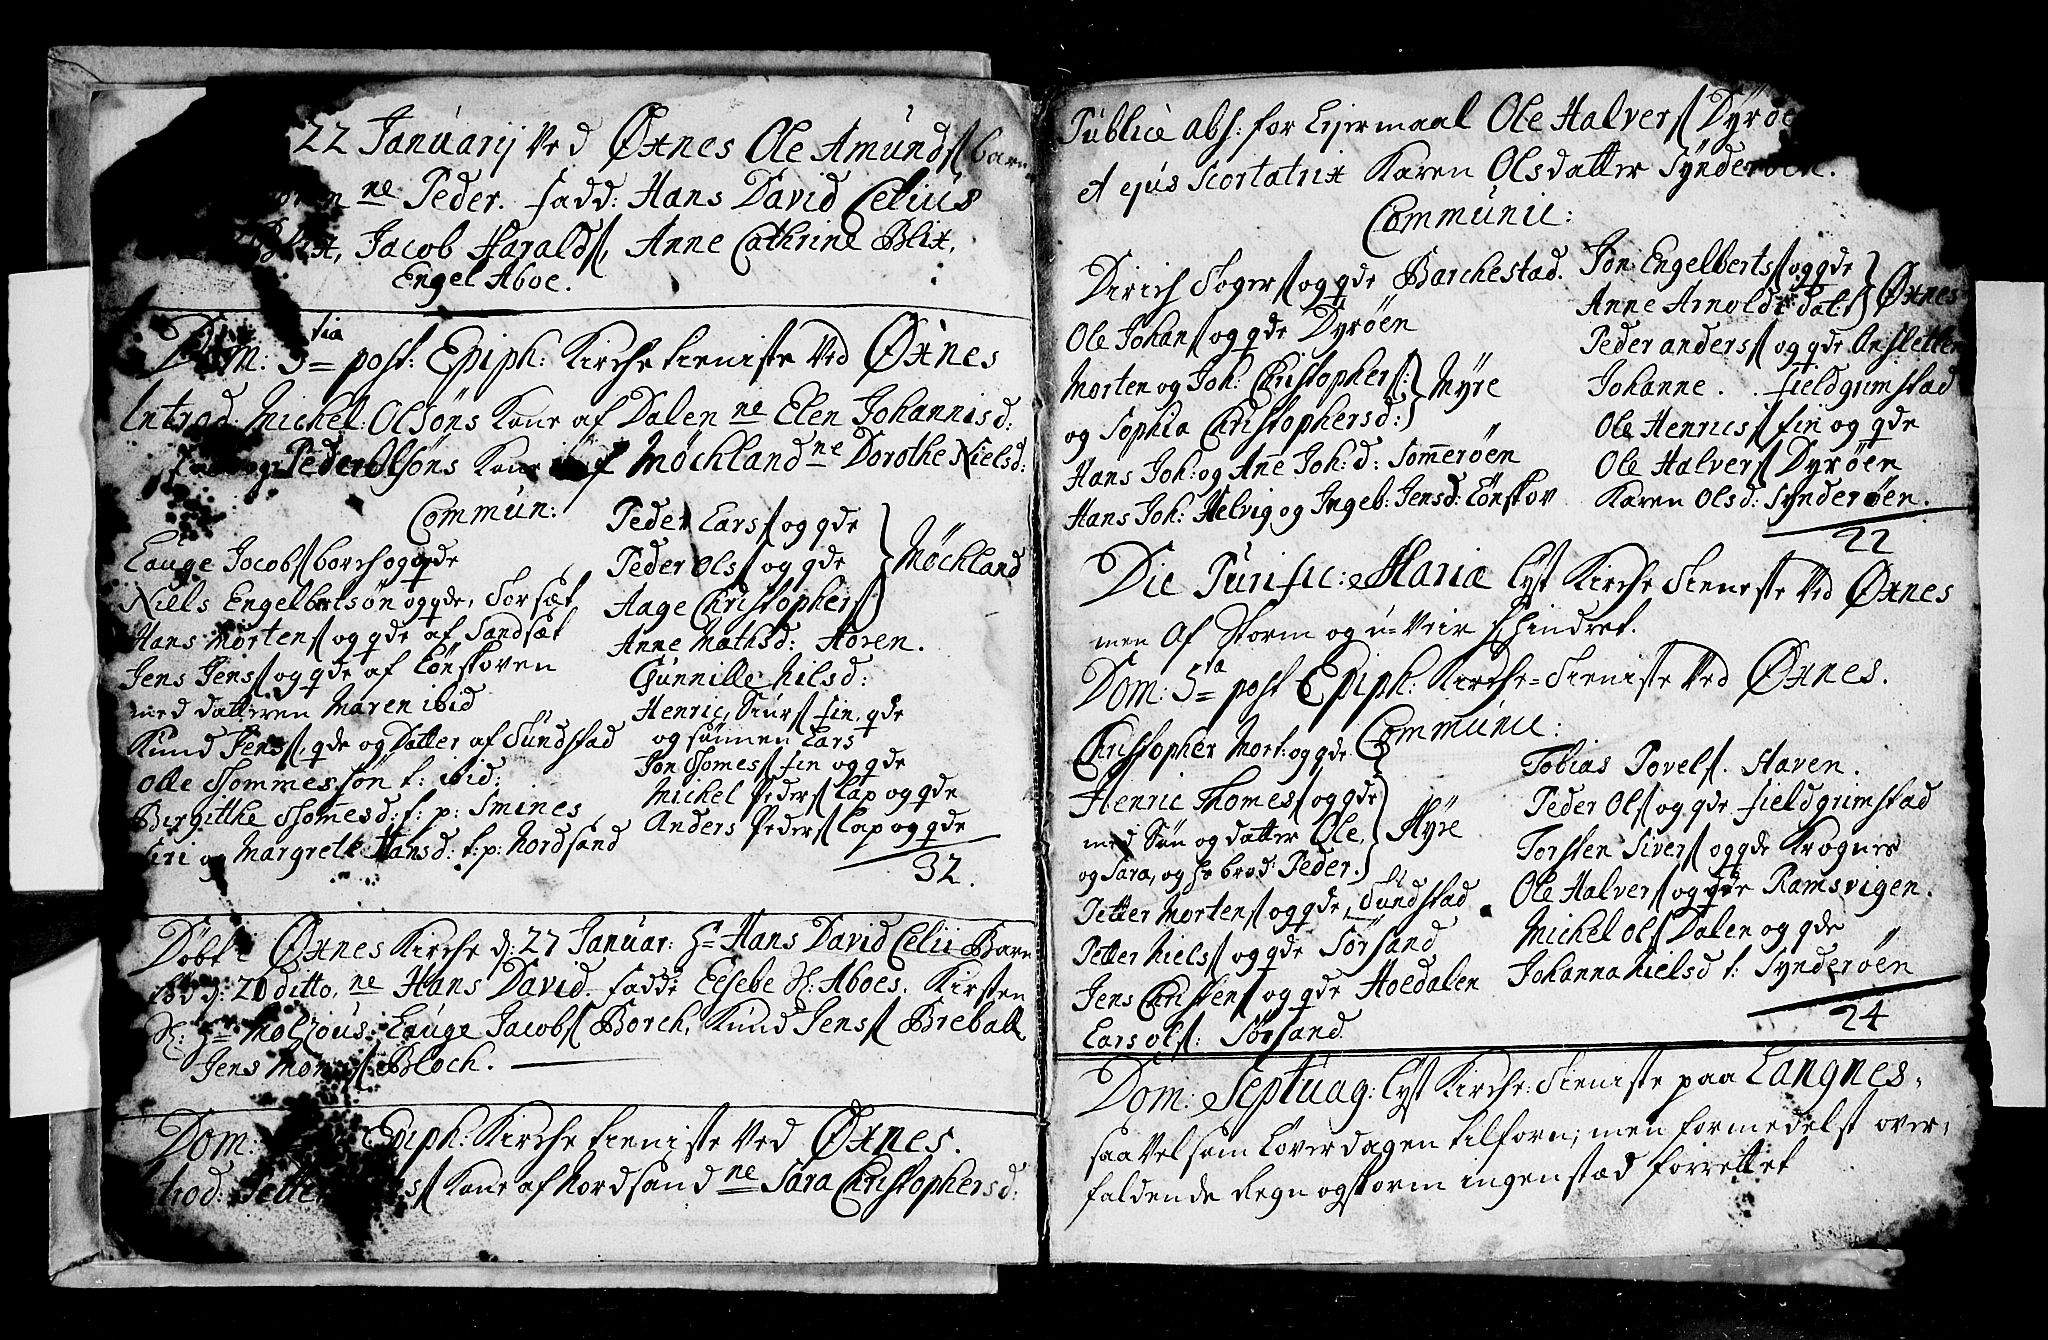 22 Januarij Ved Øxnes Ole Amunds barn
ne Peder. fadd: Hans David Celius
Blix, Jacob Haralds, Anne Cathrine Blix,
Engel Aboe.
Dom: 3tia post: Epiph: Kirche tieniste Ved Øxnes
Introd: Michel Olsöns Kone af Dalen ne Elen Johannisd:
Peder Olsöns Kone af Möchland ne Dorothe Nielsd:
Commun:
Lauge Jacobs borch og qde
Niels Engelbrtsøn og qde, Sorsæt
Hans Mortens og qde af Sandsæt
Jens Jens og qde af Lönskoven
med datteren Maren ibid
Knud Jens, qde og Datter af Sundstad
Olle Thommessøn f: ibid:
Birgitthe Thomesd: f: p: Smines
Siri og Margrete Hansd: f: p: Nordsand
Peder Lars og qde
Peder Ols og qde } Möchland
Aage Christophers
Anne Mathsd: Haven.
Gunnille Nilsd:
Henric Siurs fin, qde
og sönnen Lars
Jon Thomes fin og qde
Michel Peders lap og qde
Anders Peders lap og qde
32.
Döbt i Øxnes Kirche d: 27 Januar: Hr Hans David Celii Barn
fød d: 20 ditto, ne Hans David. fadd: Lesebe Sl: Aboes, Kirsten
Sl: Hr Molzous, Lauge Jacobs Borch, Knud Jens Breball
Jens Mons Bloch.
Dom: Epiph: Kirche tieniste Ved Øxnes.
Introd: Petter Kone af Nordsand ne Sara Christophersd:
Publicè abs: for Leiermaal Ole Halvers Dyröe
et ejus Scortatrix Karen Olsdatter Synderöen.
Communic:
Dirich Sogers og qde Barchestad.
Ole Johans og qde Dyröen
Morten og Joh: Christophers: } Myre
og Sophia Christophersd:
Hans Joh: og Ane Joh: d: Someröen
Hans Joh: Helvig og Ingeb: Jensd: Lönskov
Jon Engelberts og qde } Øxnes
Anne Arnolds datt
Peder anders og qde Ansletten
Johanne . . fieldgrimstad
Ole Henrics fin og qde
Ole Halvers Dyröen
Karen Olsd: Synderöen.
22
Die Purific: Mariæ lyst Kirche Tieneste Ved Øxnes
men Af Storm og u-Veir forhindret.
Dom: 5ta post Epiph: Kirche-Tieniste Ved Øxnes.
Communic:
Christopher Mort: og qde
Henric Thomes og qde
med Sön og datter Ole, } Myre
og Sara, og hs brod Peder.
Petter Mortens og qde, Sundstad
Petter Niels og qde Sörsand
Jens Christens og qde Hoedalen
Lars Ols: Sörsand
Tobias Povels. Haven.
Peder Ols og qde fieldgrimstad
Torsten Sivers og qde Krognes
Ole Halvers og qde Ramsvigen.
Michel Ols Dalen og qde
Johanna Nielsd f: Synderöen
24
Dom: Septuag: lyst Kirche: Tieniste paa Langnes,
saavelsom Löverdagen tilforn; men formedelst over-
faldende Regn og storm ingenstæd forrettet